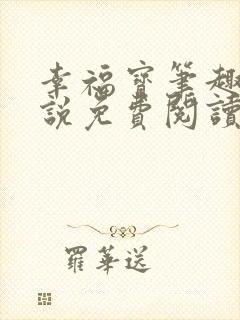 幸福寳筆趣
說免費閱讀
羅華送